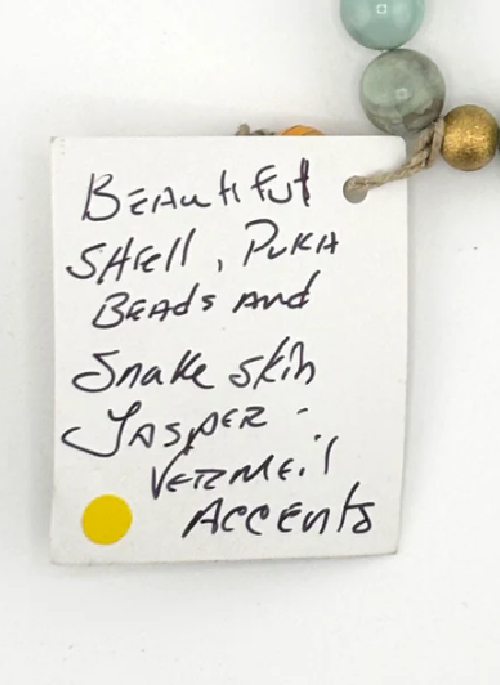 BEAutiful
SHell, PUKA
BEADS AND
Snake skin
JASPER -
VERMEil
ACCENts